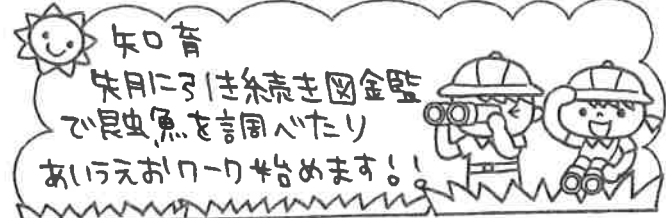 知育
先月に引き続き図鑑
で昆虫魚を調べたり
あいうえおワーク始めます!!